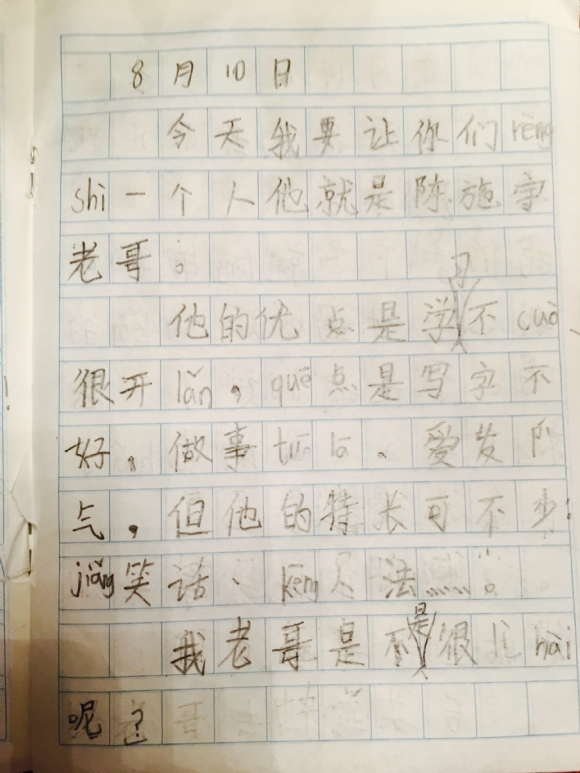 8月10日
今天我要让你们rèng
shi一个人他就是陈施宇
老哥。
他的优点是学习不cuò、
很开lǎn,quē点是写字不
好、做事tuō lā、爱发阝
气,但他的特长可不少:
jiǎng笑话、kēng人法……。
我老哥是不是很 hài
呢?